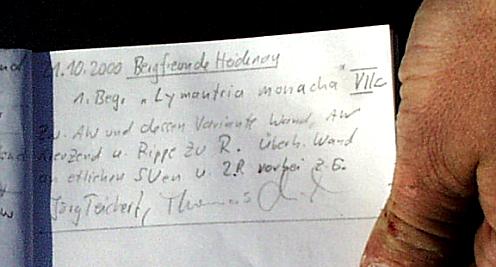 21.10.2000 Bergfreunde Heidenau
1. Beg. „Lymantria monacha" VIIc
Zu. AW und dessen Variante Wand, AW
kreuzend u. Rippe zu R. überh. Wand
an etlichen SUen u. 2.R vorbei z. G.
Jörg Teichert, Thomas